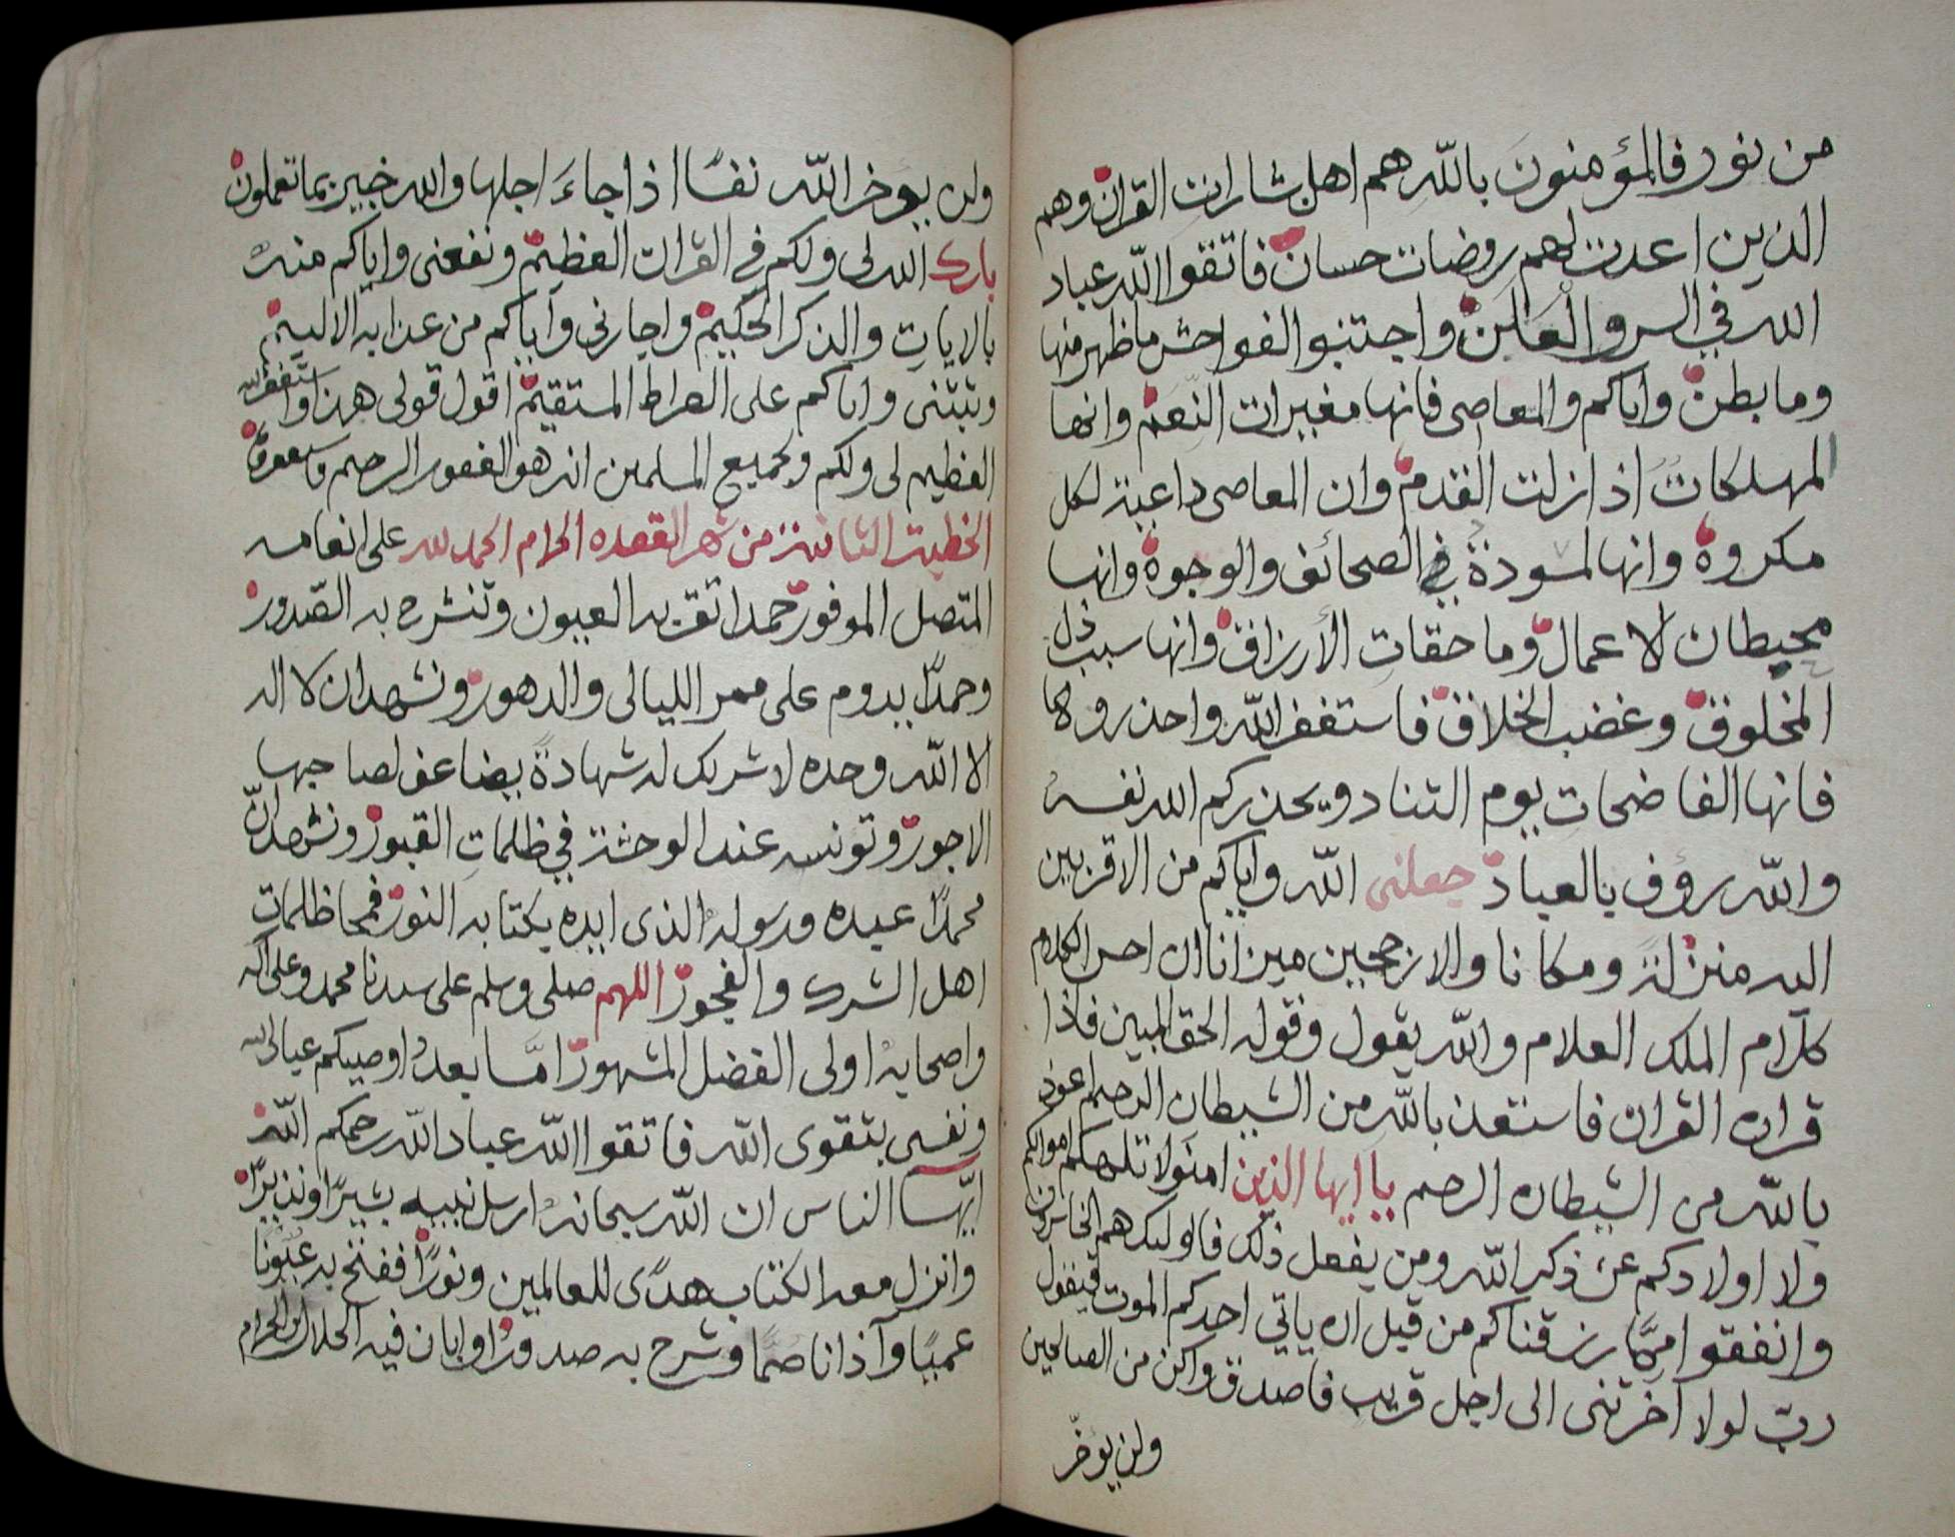 من نور فالمؤمنون بالله هم اهل بشارات القران وهم
الذين اعدت لهم روضات حسان فاتقوا الله عباد
الله في السر والعلن واجتنبوا الفواحش ما ظهر منها
وما بطن واياكم والمعاصى فانها مغيرات النعم وانها
المهلكات اذا زلت القدم وان المعاصى داعية لكل
مكروه وانها لمسودة في الصحائف والوجوه وانها
محيطات لاعمال وماحقات الأرزاق وانها سبب ذل
المخلوق وغضب الخلاق فاستغفر الله واحذروها
فانها الفاضحات يوم التناد ويحذركم الله نفسه
والله رؤف بالعباد جعلنى الله واياكم من الاقربين
اليه منزلة ومكانا والارجحين ميزانا ان احسن الكلام
كلام الملك العلام والله يقول وقوله الحق المبين فاذا
قراة القران فاستعذ بالله من الشيطان الرجيم اعوذ
بالله من الشيطان الرجيم يا ايها الذين امنو لا تلهكم اموالكم
ولا اولادكم عن ذكر الله ومن يفعل ذلك فاوليك هم الخاسرون
وانفقوا مما رزقناكم من قبل ان ياتي احدكم الموت فيقول
رب لولا اخرتنى الى اجل قريب فاصدق واكن من الصالحين
ولن يوخر
ولن يوخر الله نفسا اذا جاء اجلها والله خبير بما تعملون
بارك الله لى ولكم في القران العظيم ونفعنى واياكم منه
بالايات والذكر الحكيم واجارنى واياكم من عذابه الاليم
وثبتنى واياكم على الصراط المستقيم اقول قولى هذا واستغفر الله
العظيم لى ولكم ولجميع المسلمين انه هو الغفور الرحيم
الخطبة الثانية من شهر القعده الحرام الحمد لله على انعامه
المتصل الموفور حمدا تقر به العيون وتنشرح به الصدور
وحمدا يدوم على ممر الليالى والدهور ونشهد ان لا اله
الا الله وحده لا شريك له شهادة يضاعف لصاحبها
الاجور وتونسه عند الوحشة في ظلمات القبور ونشهد ان
محمدا عبده ورسوله الذى ايده بكتابه النور فمحا ظلمات
اهل الشرك والفجور اللهم صلى وسلم على سيدنا محمد وعلى آله
واصحابه اولى الفضل المشهور اما بعد اوصيكم عباد الله
ونفسى بتقوى الله فاتقوا الله عباد الله رحمكم الله
ايها الناس ان الله سبحانه ارسل نبيه بشيرا ونذيرا
وانزل معه الكتاب هدى للعالمين ونورا ففتح به عيونا
عميا وآذانا صما وشرح به صدورا وابان فيه الحلال من الحرام